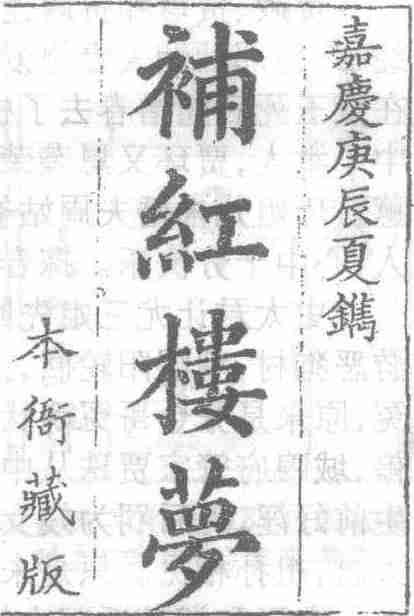 嘉慶庚辰夏鐫
補紅樓夢
本衙藏版